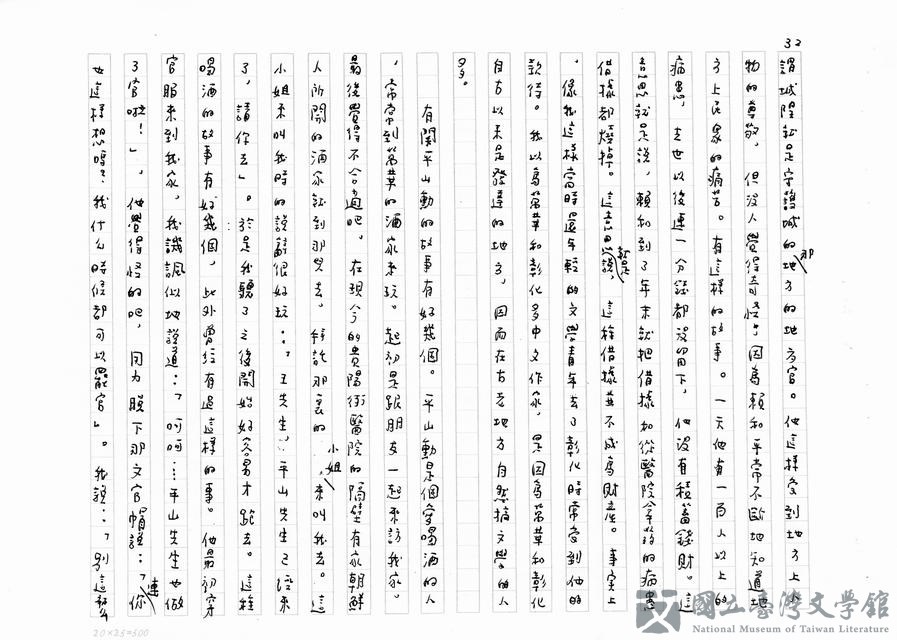 32
謂城隍就是守護城的那地方的地方官。他這樣受到地方上人
物的尊敬，但沒人覺得奇怪，因為賴和平常不斷地知道地
方上民眾的痛苦。有這樣的故事。一天他有一百人以上的
病患，去世以後連一分錢都沒留下，他沒有積蓄錢財。這
意思就是說，賴和到了年末就把借據如從醫院拿藥的病患
借據都燒掉。這意思就是說，這種借據並不成為財產。事實上
，像我這樣當時還年輕的文學青年去了彰化時常受到他的
款待。我以為萬華和彰化多中文作家，是因為萬華和彰化
自古以來是發達的地方，因而在古老地方自然搞文學的人
多。
有關平山勳的故事有好幾個。平山勳是個愛喝酒的人
，常常到萬華的酒家來玩。起初是跟朋友一起來訪我家。
最後覺得不合適吧。在現今的貴陽街醫院的隔壁有家朝鮮
人所開的酒家就到那兒去。後託那裏的小姐來叫我去。這
小姐來叫我時的說辭很好玩：「王先生，平山先生已經來
了，請你去」。於是我聽了之後開始好容易才跑去。這種
喝酒的故事有好幾個，此外曾經有過這樣的事。他最初穿
官服來到我家，我諷刺似地說道：「呵呵…平山先生也做
了官啦！」，他覺得怪的吧，因為脫下那文官帽說：「你連
也這樣想嗎？我什麼時候都可以罷官」。我說：「別這麼
20×25=500
國立臺灣文學館
National Museum of Taiwan Literature